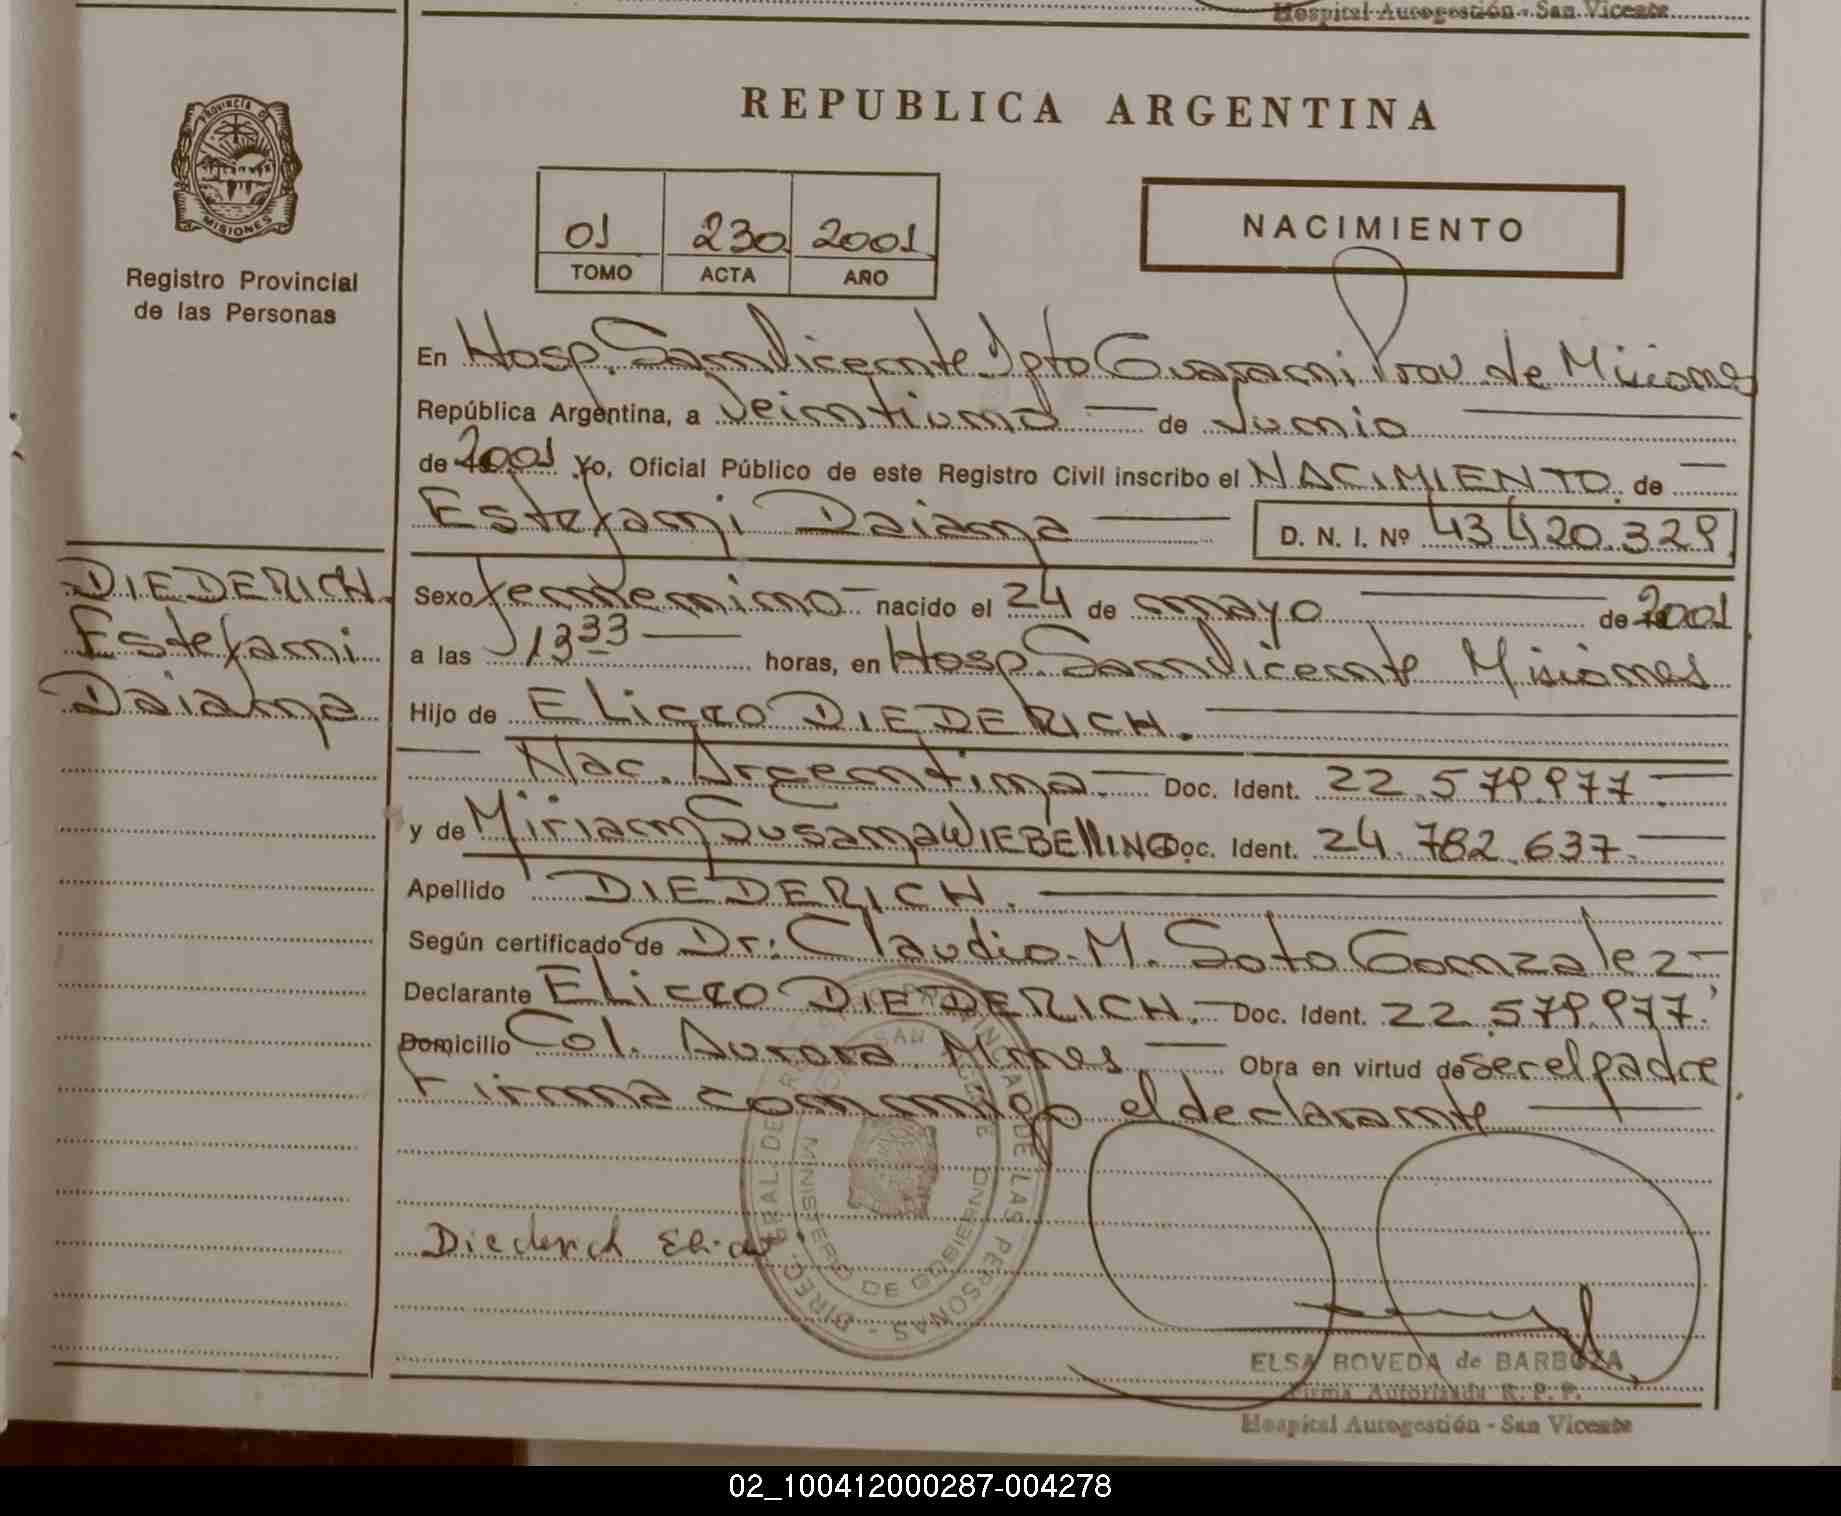 Hospital Autogestión - San Vicente
REPUBLICA ARGENTINA
PROVINCIA
MISIONES
Registro Provincial
de las Personas
01 230 2001
TOMO ACTA AÑO
NACIMIENTO
En Hosp. San Vicente Dpto Guarani Prov de Misiones
República Argentina, a veintiuno de Junio
de 2001 Yo, Oficial Público de este Registro Civil inscribo el NACIMIENTO de
Estefani Daiana
D. N. I. Nº 43420.329
DIEDERICH
Estefani
Daiana
Sexo femenino nacido el 24 de mayo de 2001
a las 13 33 horas, en Hosp. San Vicente Misiones
Hijo de DIEDERICH.
Nac. Argentina. Doc. Ident. 22.579.977
y de Miriam Susana WIEBELLING Doc. Ident. 24.782.637.
Apellido DIEDERICH.
Según certificado de Dr: Claudio M. Soto Gonzalez
Declarante DIEDERICH. Doc. Ident. 22.579.977.
Domicilio Col. Aurora Mnes Obra en virtud de ser el padre
Firma conmigo el declarante
Diederich
DE LAS PERSONAS - DIREC.
MINISTERIO DE GOBIERNO
ELSA BOVEDA de BARBOZA
Firma Autorizada R. P. P.
Hospital Autogestión - San Vicente
02_100412000287-004278